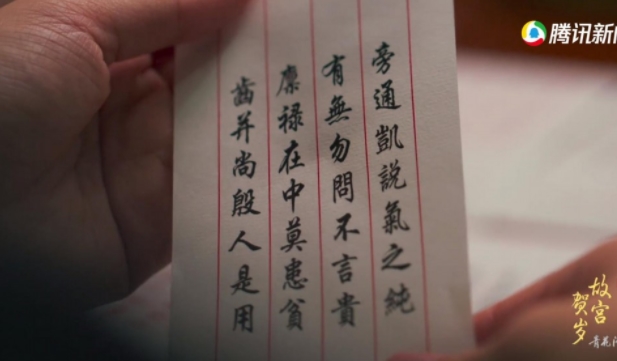 旁通凱說氣之純
有無勿問不言貴
廩祿在中莫患貧
齒并尚殷人是用
腾讯新
故宫
贺岁
青花